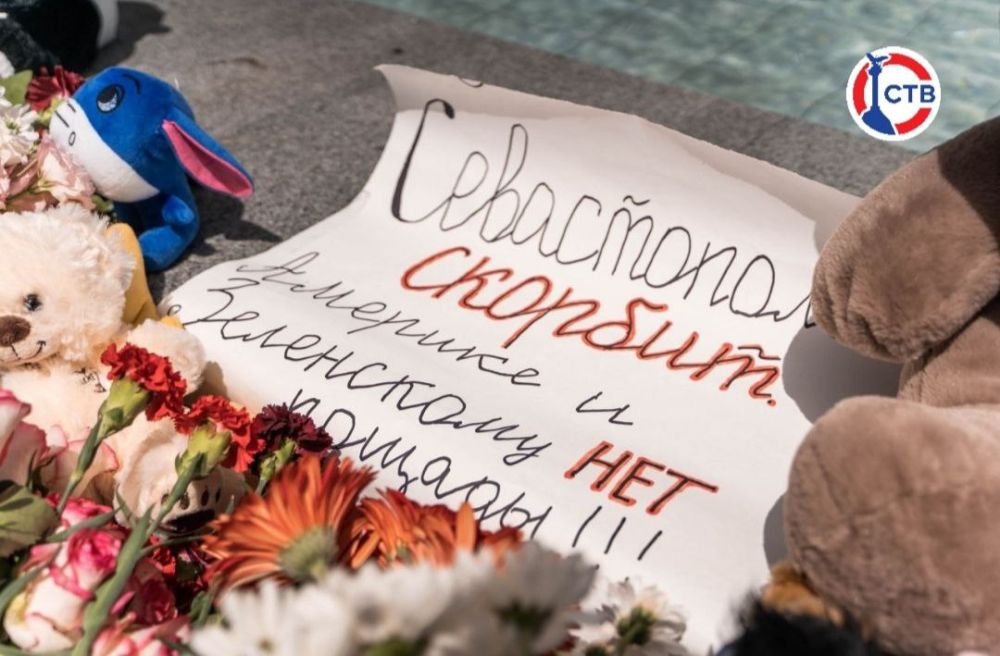 Севастопол
скорбит.
Америке и
Зеленскому НЕТ
пощады!!!
СТВ